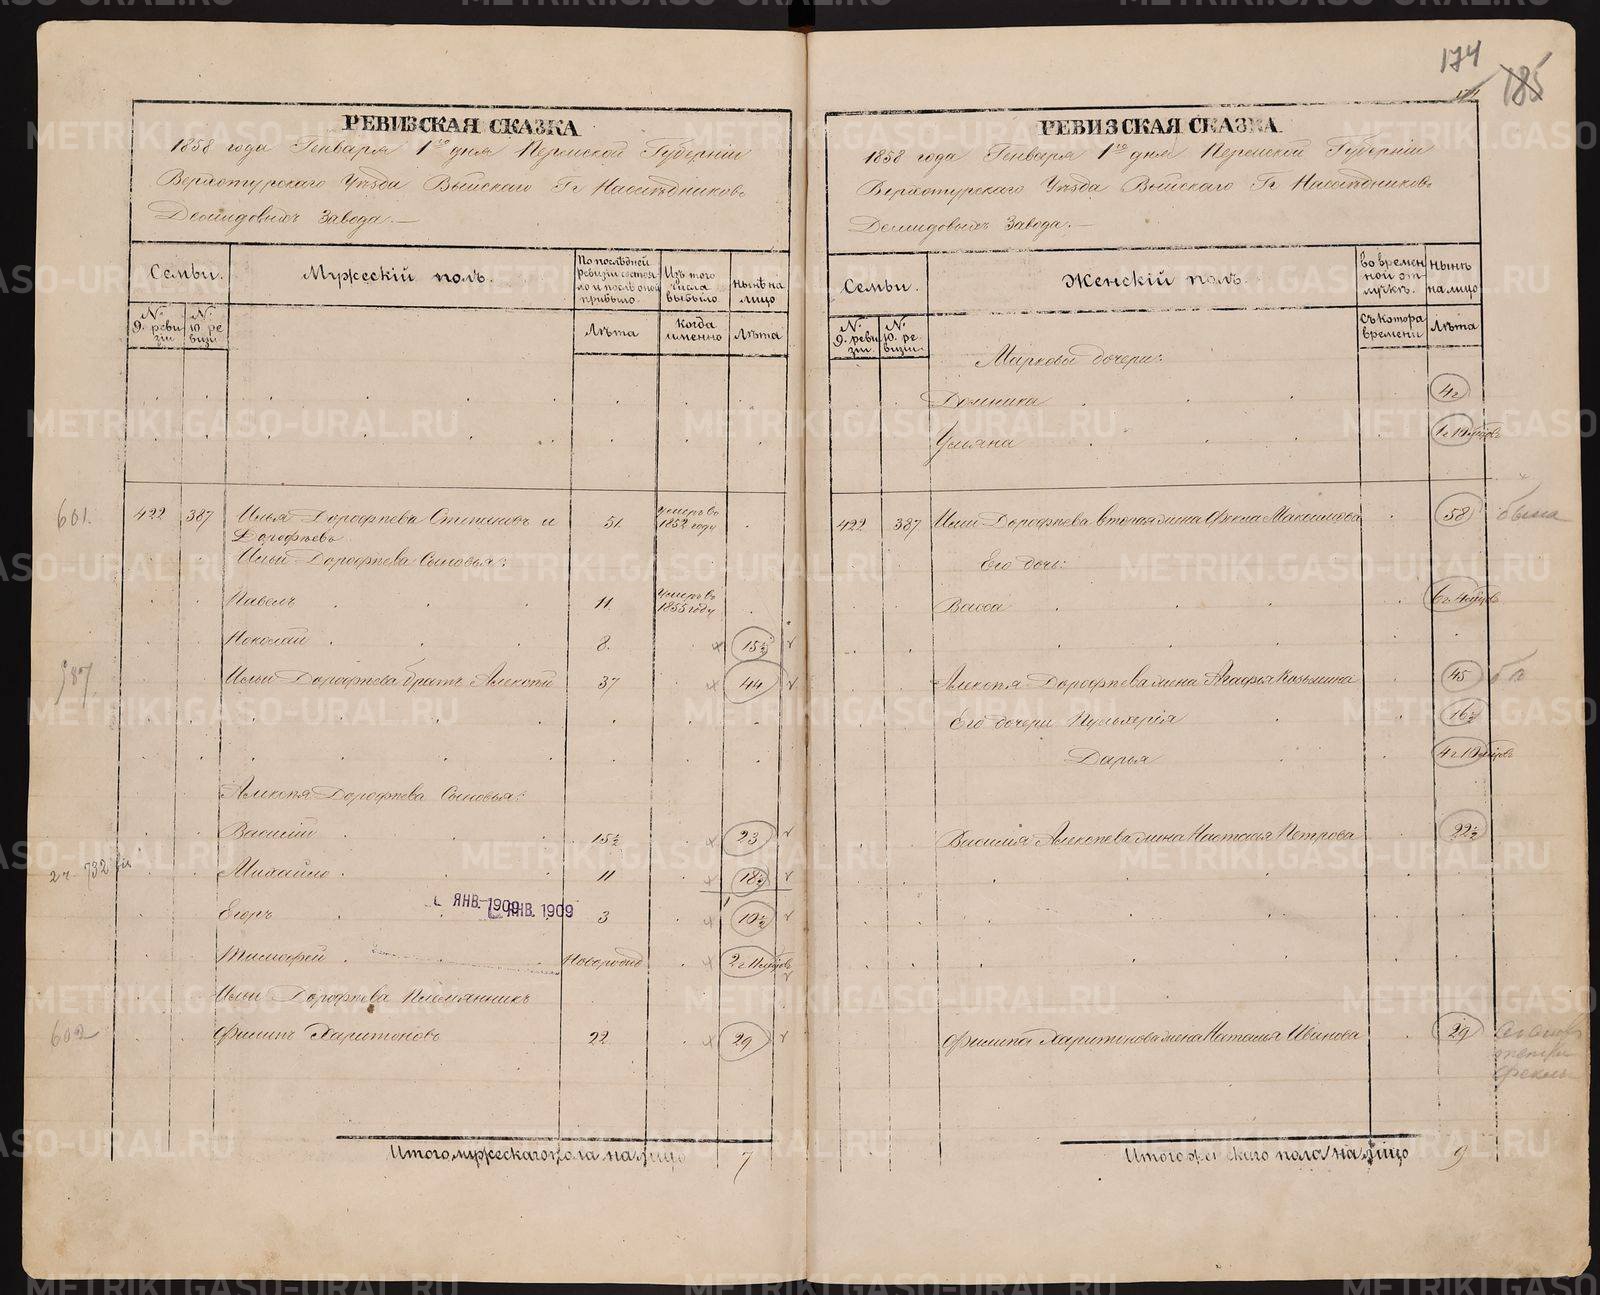 174
185
РЕВИЗСКАЯ СКАЗКА
1858 года Генваря 1го дня Пермской Губерніи
Верхотурскаго Уѣзда Выйскаго Гг Наслѣдниковъ
Демидовыхъ Завода.
Семьи.
Мужескій полъ.
По послѣдней ревизіи состояло и послѣ оной прибыло
Изъ того числа выбыло
нынѣ на лицо
№ 9. ревизіи
№ 10. ревизіи
Лѣта
Когда именно
Лѣта
601.
422 387 Илья Дорофѣева Степановъ и Дорофѣевъ 51. умеръ въ 1852 году
Ильи Дорофѣева Сыновья:
Павелъ 11 Умеръ въ 1855 году
Николай 8. 15½
587
Ильи Дорофѣева братъ Алексѣй 37 44
Алексѣя Дорофѣева Сыновья:
Василій 15½ 23
2 ч. 732
Михайло 11 18½
ЯНВ. 1909
ЯНВ. 1909
Егоръ 3 10½
Тимофей Новорожд 2 г 11 мѣсцовъ
Ильи Дорофѣева Племянникъ
602
Филипъ Харитоновъ 22 29
Итого мужескаго пола на лицо 7
РЕВИЗСКАЯ СКАЗКА
1858 года Генваря 1го дня Пермской Губерніи
Верхотурскаго Уѣзда Выйскаго Гг Наслѣдниковъ
Демидовыхъ Завода.
Семьи.
Женскій полъ.
во временной отлучкѣ.
нынѣ на лицо
№ 9. ревизіи
№ 10. ревизіи
Съ котора времени
Лѣта
Маркова дочери:
Домника 4г
Ульяна 1 г 10 мѣсцовъ
422 387 Ильи Дорофѣева вторая жена Фекла Максимова 58
Его дочь:
Васса 6 г 4 мѣсцовъ
Алексѣя Дорофѣева жена Агафья Козьмина 45
Его дочери Пульхерія 16½
Дарья 4 г 10 мѣсцовъ
Василія Алексѣева жена Настасья Петрова 22½
Филипа Харитонова жена Наталья Иванова 29
Феклы
Итого женскаго пола на лицо 9
METRIKI.GASO-URAL.RU